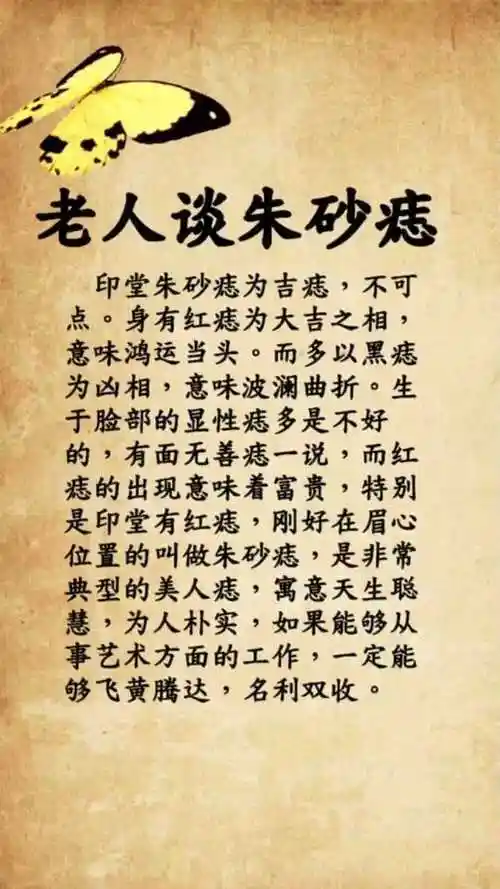 老人谈朱砂痣
印堂朱砂痣为吉痣，不可
点。身有红痣为大吉之相，
意味鸿运当头。而多以黑痣
为凶相，意味波澜曲折。生
于脸部的显性痣多是不好
的，有面无善痣一说，而红
痣的出现意味着富贵，特别
是印堂有红痣，刚好在眉心
位置的叫做朱砂痣，是非常
典型的美人痣，寓意天生聪
慧，为人朴实，如果能够从
事艺术方面的工作，一定能
够飞黄腾达，名利双收。